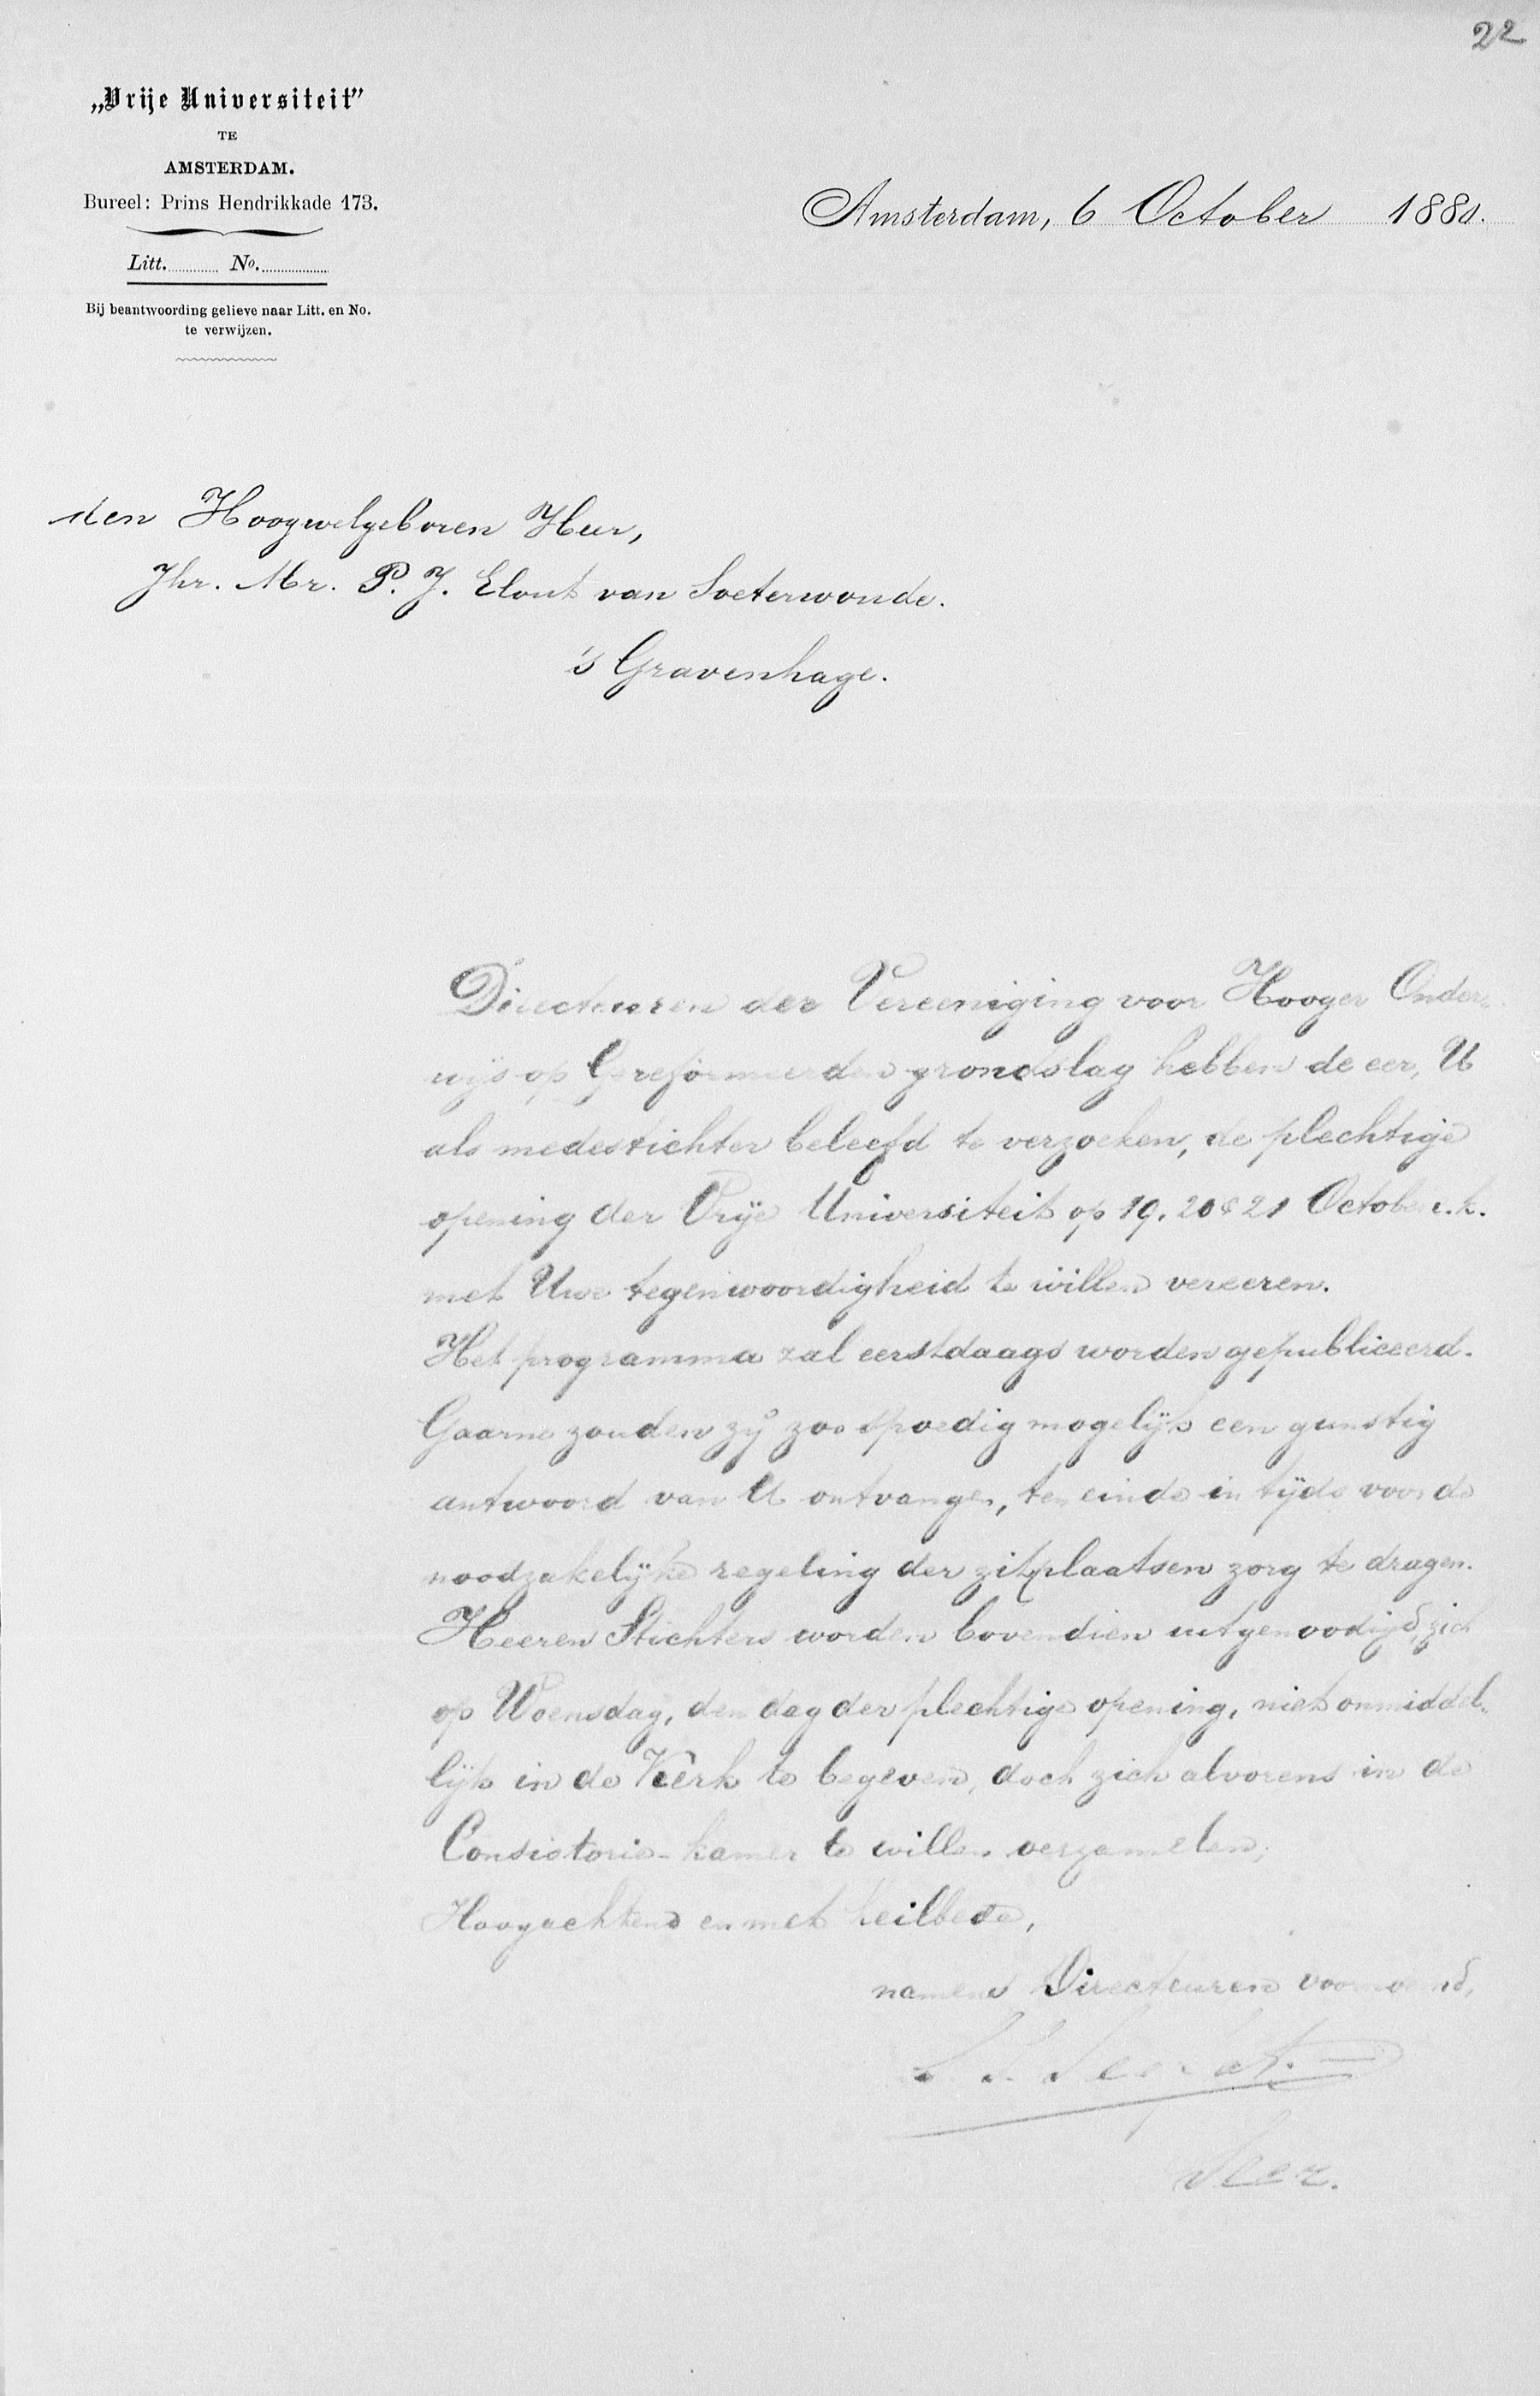 22
„Vrije Universiteit”
TE
AMSTERDAM.
Bureel: Prins Hendrikkade 173.
Litt. No.
Bij beantwoording gelieve naar Litt. en No.
te verwijzen.
Amsterdam, 6 October 1880.
den Hoogwelgeboren Heer,
Jhr. Mr. P. J. Elout van Soeterwoude.
's Gravenhage.
Directeuren der Vereeniging voor Hooger Onder-
wijs op Gereformeerden grondslag hebben de eer, U
als medestichter beleefd te verzoeken, de plechtige
opening der Vrije Universiteit op 19, 20 & 21 October e.k.
met Uwe tegenwoordigheid te willen vereeren.
Het programma zal eerstdaags worden gepubliceerd.
Gaarne zouden zij zoo spoedig mogelijk een gunstig
antwoord van U ontvangen, ten einde in tijds voor de
noodzakelijke regeling der zitplaatsen zorg te dragen.
Heeren Stichters worden bovendien uitgenoodigd, zich
op Woensdag, den dag der plechtige opening, niet onmiddel-
lijk in de Kerk te begeven, doch zich alvorens in de
Consistorie-kamer te willen verzamelen;
Hoogachtend en met heilbede,
namens Directeuren voornoemd,